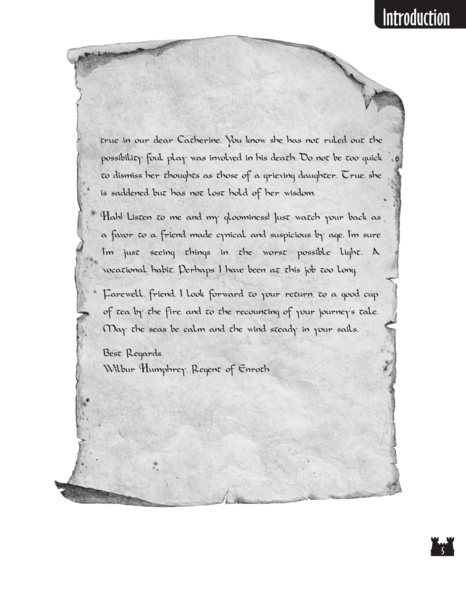 Introduction
true in our dear Catherine. You know she has not ruled out the
possibility foul play was involved in his death. Do not be too quick
to dismiss her thoughts as those of a grieving daughter. True, she
is saddened but has not lost hold of her wisdom.
Hah! Listen to me and my gloominess! Just watch your back as
a favor to a friend made cynical and suspicious by age. I'm sure
I'm just seeing things in the worst possible light. A
vocational habit. Perhaps I have been at this job too long.
Farewell, friend. I look forward to your return, to a good cup
of tea by the fire, and to the recounting of your journey's tale.
May the seas be calm and the wind steady in your sails.
Best Regards,
Wilbur Humphrey, Regent of Enroth
5